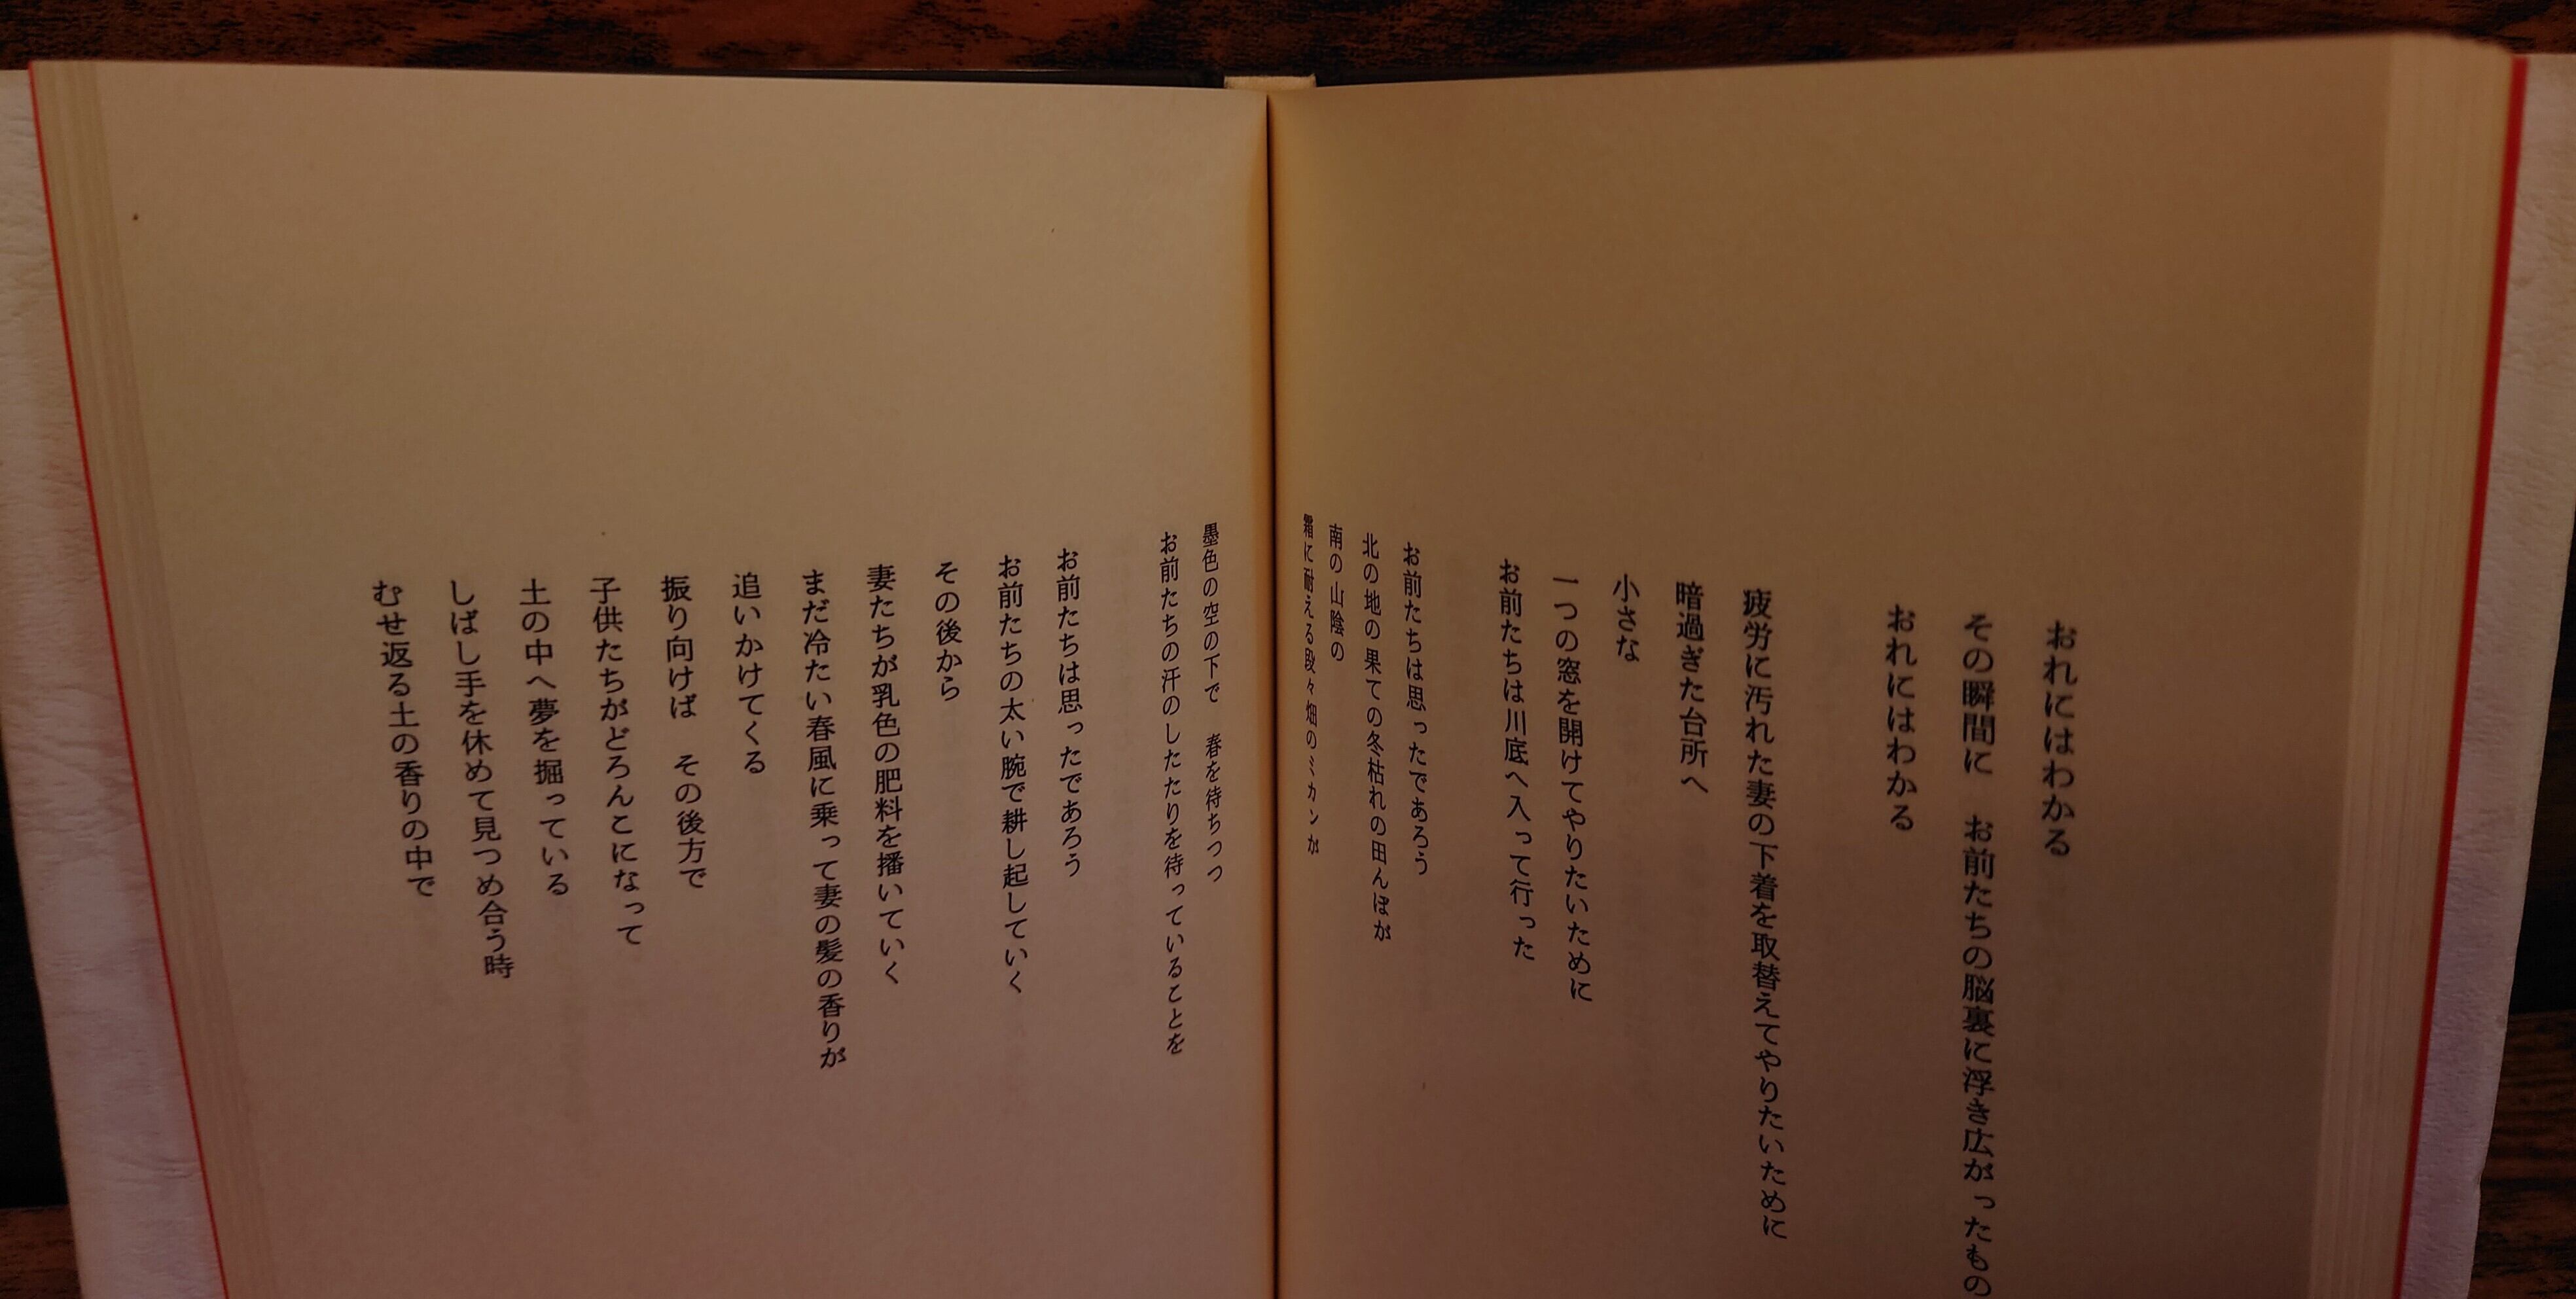 おれにはわかる
その瞬間に　お前たちの脳裏に浮き広がったもの
おれにはわかる
疲労に汚れた妻の下着を取替えてやりたいために
暗過ぎた台所へ
小さな
一つの窓を開けてやりたいために
お前たちは川底へ入って行った
お前たちは思ったであろう
北の地の果ての冬枯れの田んぼが
南の山陰の
霜に耐える段々畑のミカンが
墨色の空の下で　春を待ちつつ
お前たちの汗のしたたりを待っていることを
お前たちは思ったであろう
お前たちの太い腕で耕し起していく
その後から
妻たちが乳色の肥料を播いていく
まだ冷たい春風に乗って妻の髪の香りが
追いかけてくる
振り向けば　その後方で
子供たちがどろんこになって
土の中へ夢を掘っている
しばし手を休めて見つめ合う時
むせ返る土の香りの中で